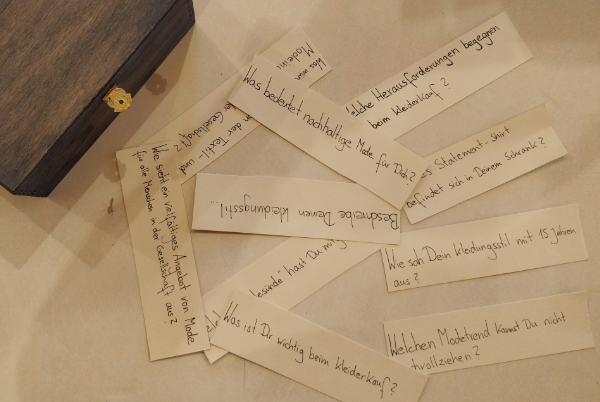 Was
Mode in
der Textil- und
Gesellschaft?
Was bedeutet nachhaltige Mode für Dich?
Herausforderungen begegnen
beim Kleiderkauf?
Statement-Shirt
befindet sich in Deinem Schrank?
Wie sieht ein vielfältiges Angebot von Mode
für alle Menschen in der Gesellschaft aus?
Beschreibe Deinen Kleidungsstil...
Wie sah Dein Kleidungsstil mit 15 Jahren
aus?
hast Du mit
Was ist Dir wichtig beim Kleiderkauf?
Welchen Modetrend kannst Du nicht